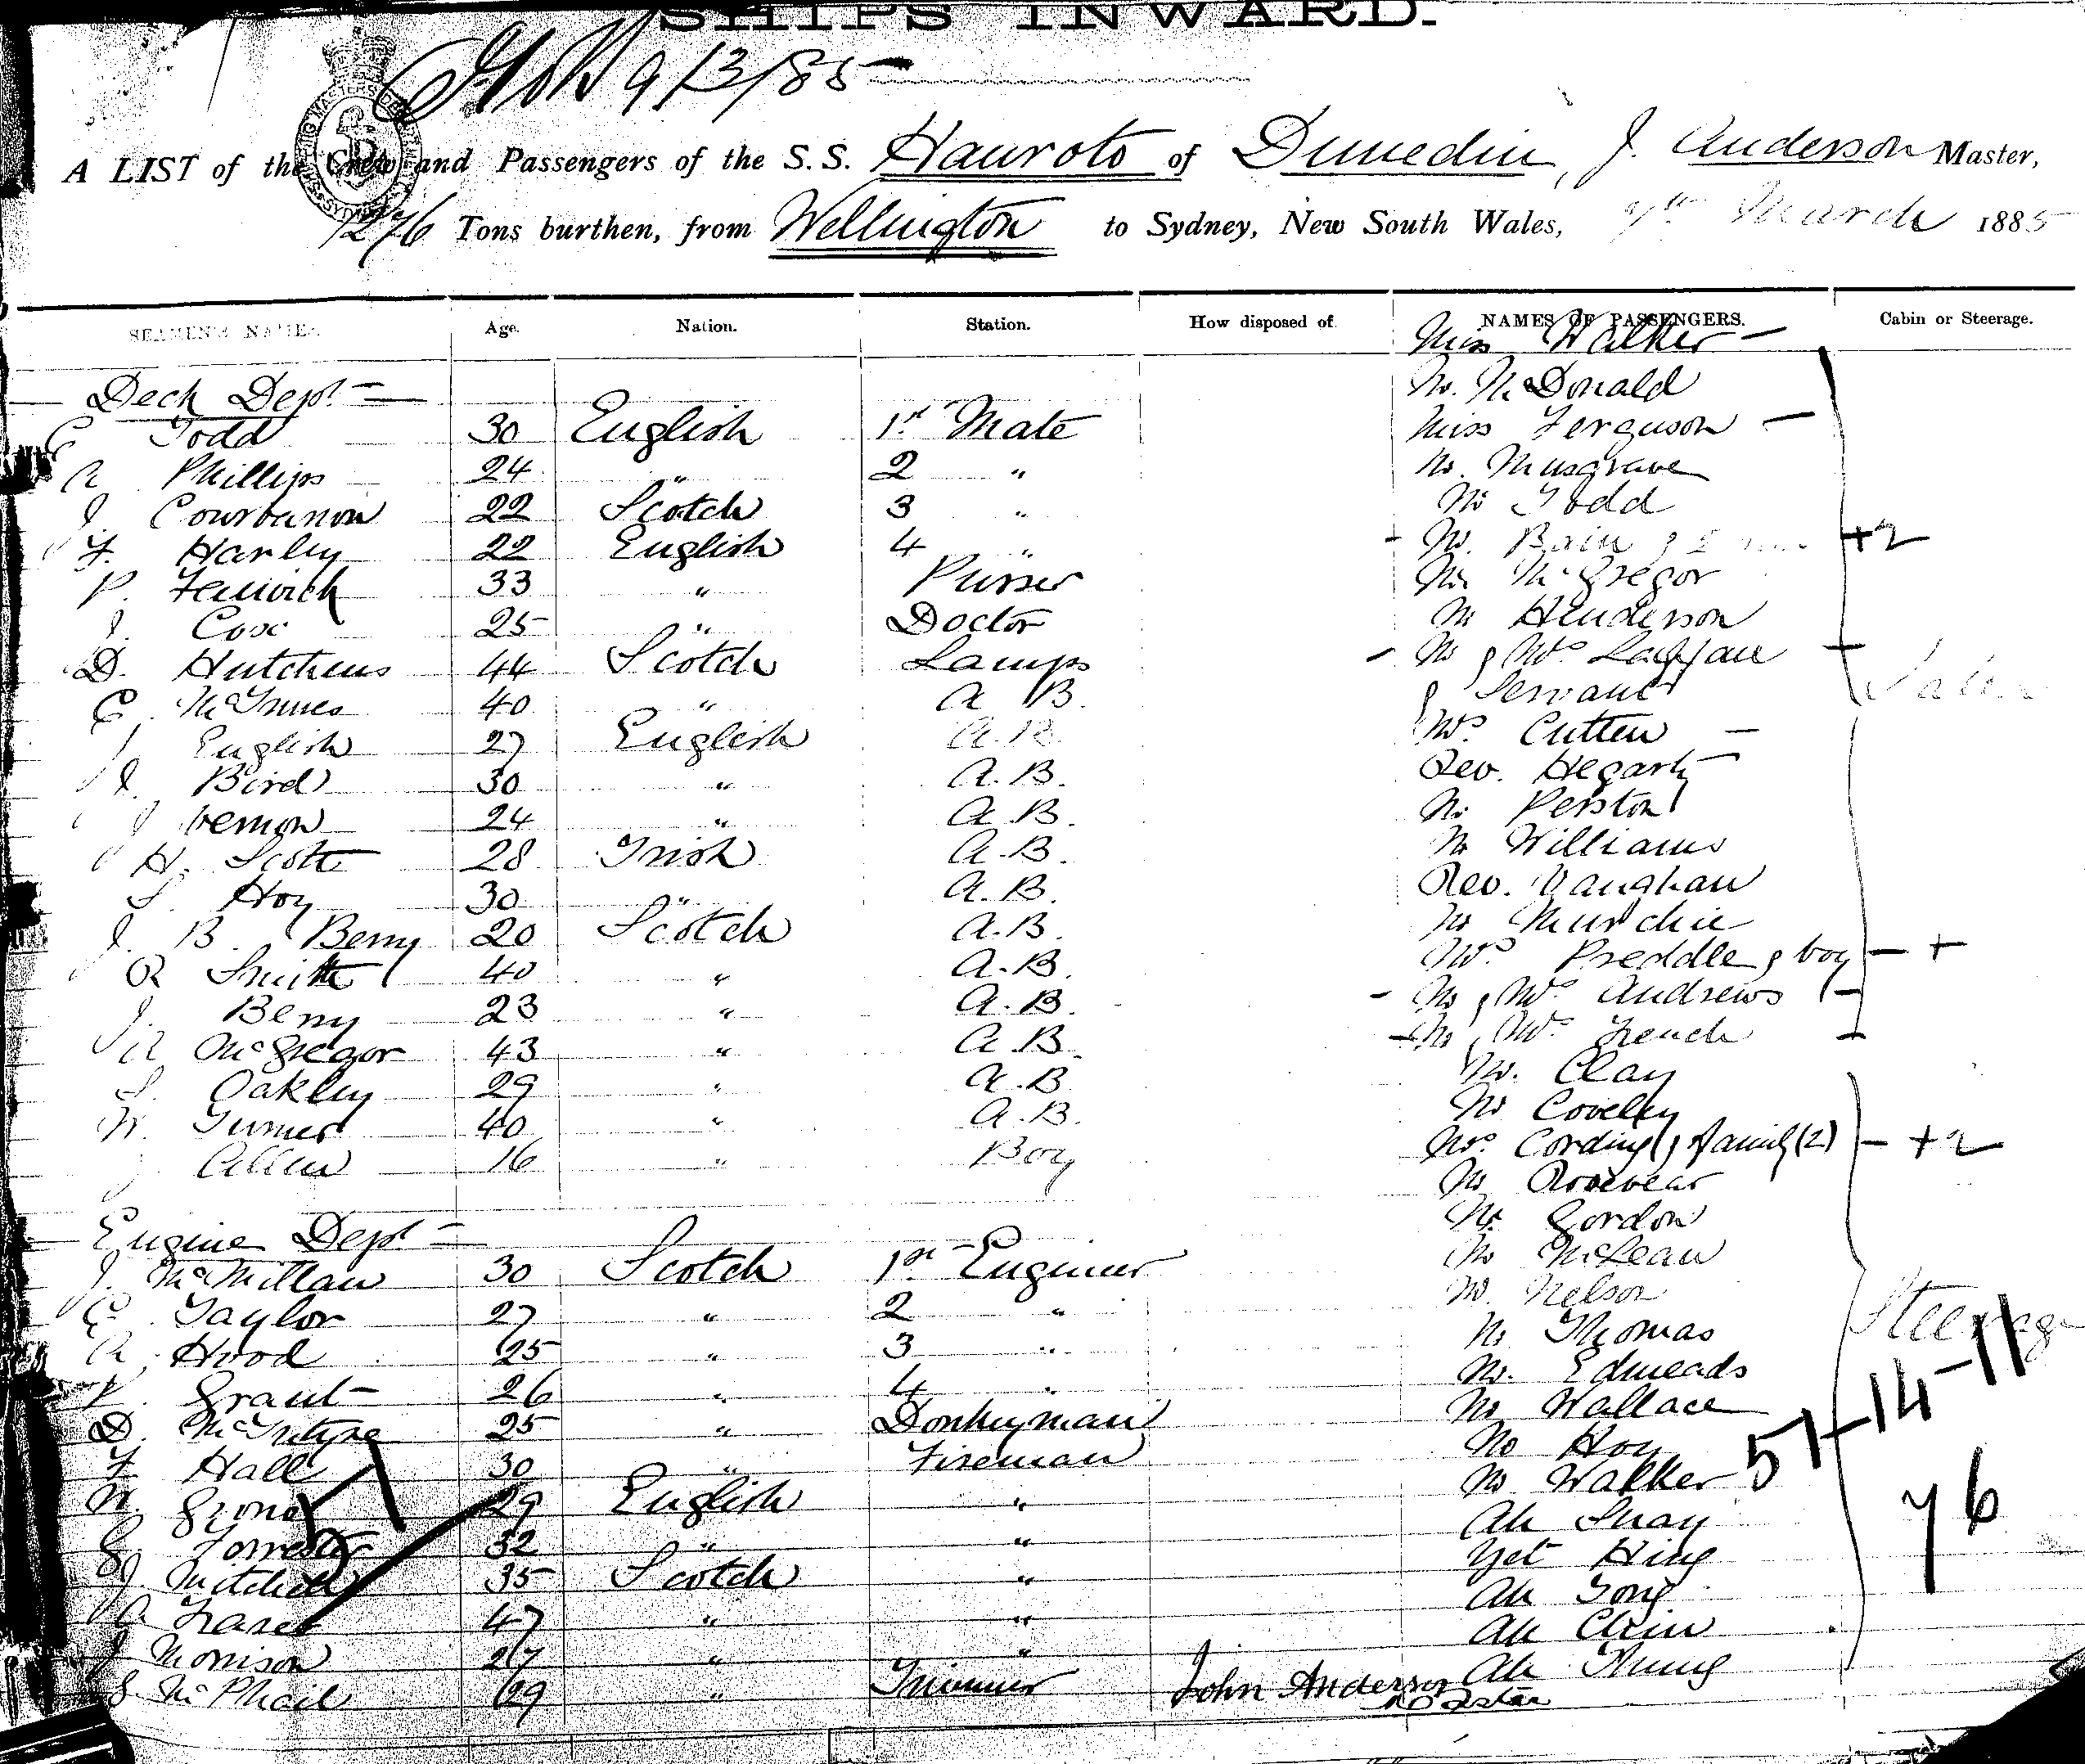 SHIPS INWARD.
9/3/85
A LIST of the Crew and Passengers of the S.S. Hauroto of Dunedin, J. Anderson Master,
1276 Tons burthen, from Wellington to Sydney, New South Wales, 7th March 1885
SEAMEN'S NAMES. Age. Nation. Station. How disposed of. NAMES OF PASSENGERS. Cabin or Steerage.
Miss Walker —
Deck Dept
Mr. McDonald
Todd 30 English 1st Mate Miss Ferguson —
Phillips 24 " 2 " Mr. Musgrave
J. 22 Scotch 3 " Mr Todd
F. Harley 22 English 4 " Mr. Bain & +2
P. Fenwick 33 " Purser Mr. McGregor
J. Cox 25 " Doctor Mr Henderson
D. Hutchens 44 Scotch Lamps Mr & Mrs
McInnes 40 " A B & Servant
English 27 English A.B. Mrs Cutten —
J. Bird 30 " A.B. Rev. Hegarty —
J Vernon 24 " A.B. Mr Perston
H. Scott 28 Irish A.B. Mr Williams
S. Hoy 30 " A.B. Rev. Vaughan
J. B. Berry 20 Scotch A.B. Mr Murchie
R Smith 40 " A.B. Mrs Preddle & boy — +
J. Berry 23 " A.B. — Mr & Mrs Andrews —
A McGregor 43 " A.B. — Mr & Mrs French
S. Oakley 29 " A.B. Mr. Clay
W. Turner 40 " A.B. Mr Coveley
Allen 16 " Boy Mrs Cording & family (2) — +2
Mr Rosevear
Engine Dept Mr. Gordon
J. McMillan 30 Scotch 1st Engineer Mr McLean
Taylor 27 " 2 " Mr. Nelson
A. Hood 25 " 3 " Mr Thomas Steerage
Grant 26 " 4 " Mr. Edmeads
D. McIntyre 25 " Donkeyman Mr Wallace 51-14-11
F Hall 30 " Fireman Mr Hoy
W. 29 English " Mr Walker
G. Forrester 32 " " Ah Shay 76
J Mitchell 35 Scotch " Yet Hing
A Fraser 47 " " Ah Tong
J Morrison 27 " " Ah Chin
McPhail 29 " Trimmer John Anderson Ah Thung
Master